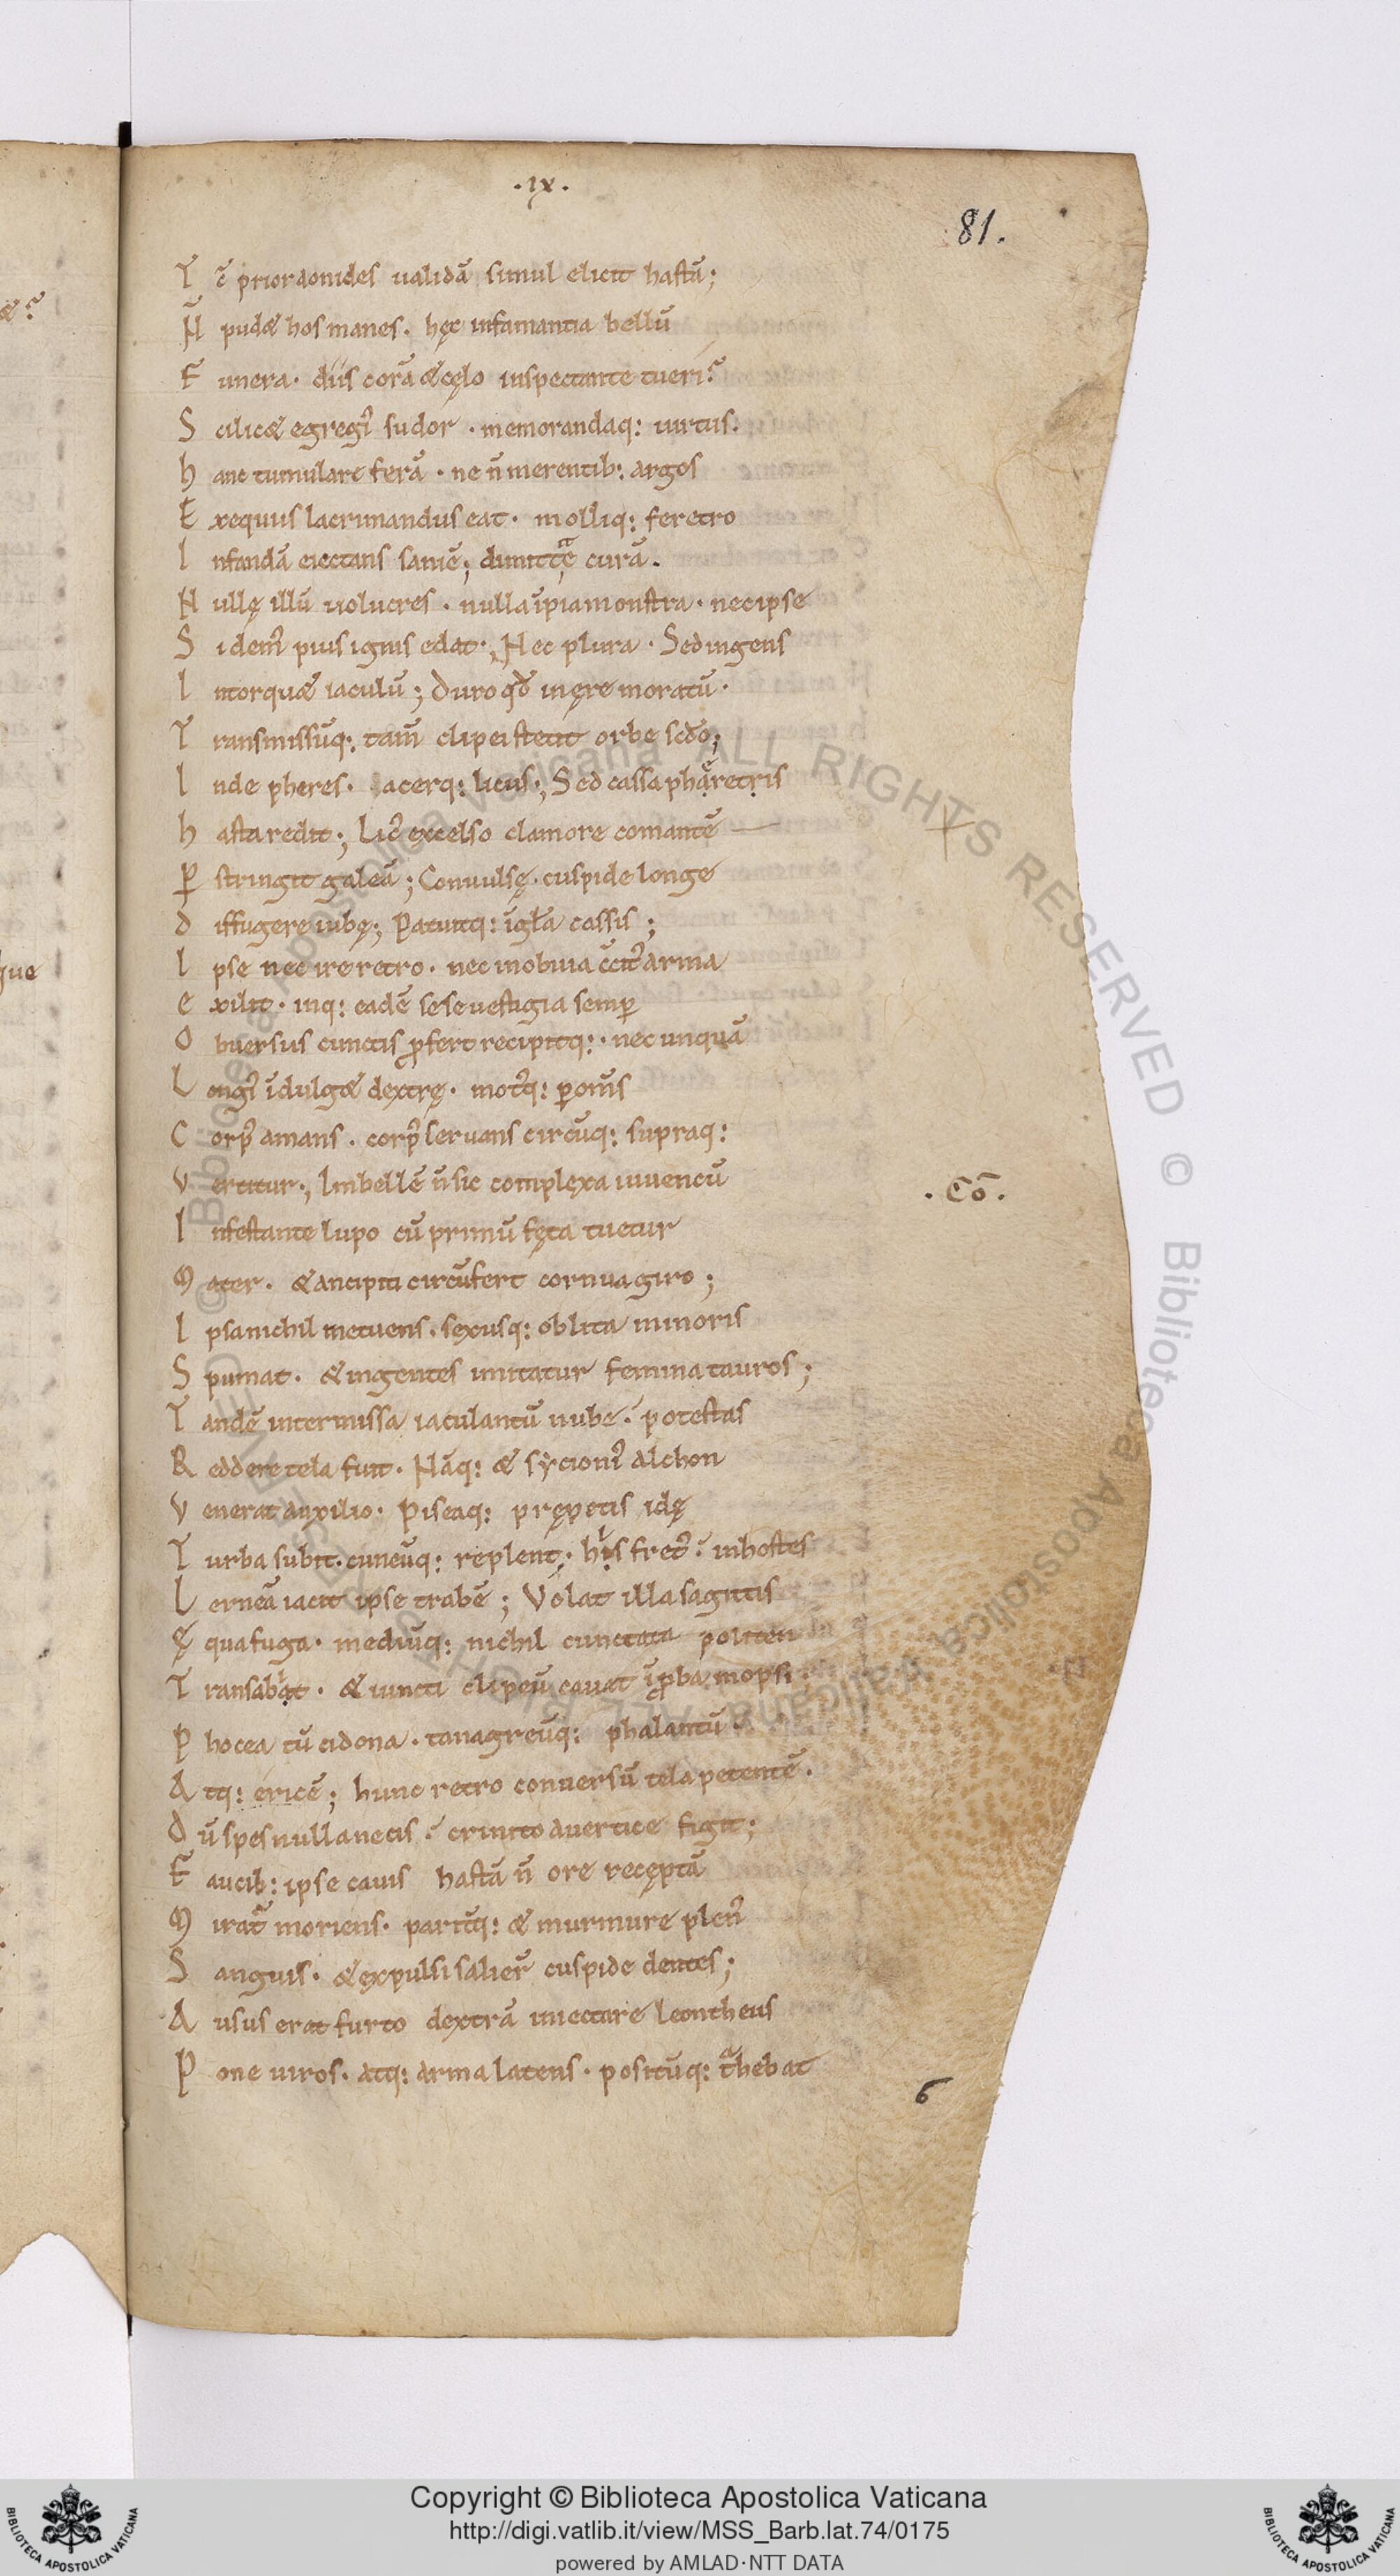 .ix.
81.
T c̄ prior aonides ualidā simul elicit hastā;
N̄ pudæ hos manes. hęc infamantia bellū
F unera. diis corā & cęlo inspectante tueri?
S cilicæ egregi᾽ sudor. memorandaq: uirtus.
h anc tumulare ferā. ne n̄ merentib: argos
E xequiis lacrimandus eat. molliq: feretro
I nfandā eiectans saniē; curā.
N ullę illū uolucres. nulla īpia monstra. nec ipse
S i dem᾽ pius ignis edat; Nec plura. Sed ingens
I ntorquæ iaculū; Duro qđ in ęre moratū.
T ransmissūq: tam̄ clipei stetit orbe scđo;
I nde pheres. acerq: licus; Sed cassa pharetris
h asta redit; Lic᾽ excelso clamore comantē
ꝑ stringit galeā; Conuulsę. cuspide longe
d iffugere iubę; Patuitq: īgła cassis;
I pse nec ire retro. nec in obuia c̄cit᾽ arma
e xilit. inq: eadē sese uestigia semꝑ
O buersus cunctis ꝓfert recipitq:. nec unquā
L ongi᾽ īdulgæ dextrę. mot᾽q: ꝑ om̄s
C orp᾽ amans. corp᾽ seruans circūq: supraq:
V ertitur; Imbellē n̄ sic complexa iuuencū
.Cō.
I nfestante lupo cū primū fęta tuetur
M ater. & ancipiti circūfert cornua giro;
I psa nichil metuens. sexusq: oblita minoris
S pumat. & ingentes imitatur femina tauros;
T andē intermissa iaculantū nube. potestas
R eddere tela fuit. Nāq: & sycioni᾽ alchon
V enerat auxilio. Piseaq: prępetis idę
T urba subit. cuneūq: replent; his fret᾽ in hostes
L erneā iacit ipse trabē; Volat illa sagittis
Ę qua fuga. mediūq: nichil cunctata politen
T ransabiit. & iuncti clipeū cauat īꝓba mopsi
P hocea tū cidona. tanagreūq: phalantū
A tq: ericē; hunc retro conuersū tela petentē.
D ū spes nulla necis. crinito a uertice figit;
F aucib: ipse cauis hastā n̄ ore receptā
M irat᾽ moriens. parit᾽q: & murmure plen᾽
S anguis. & expulsi salier᾽ cuspide dentes;
A usus erat furto dextrā iniectare leontheus
P one uiros. atq: arma latens. positūq: thebat
6
Copyright © Biblioteca Apostolica Vaticana
http://digi.vatlib.it/view/MSS_Barb.lat.74/0175
powered by AMLAD·NTT DATA